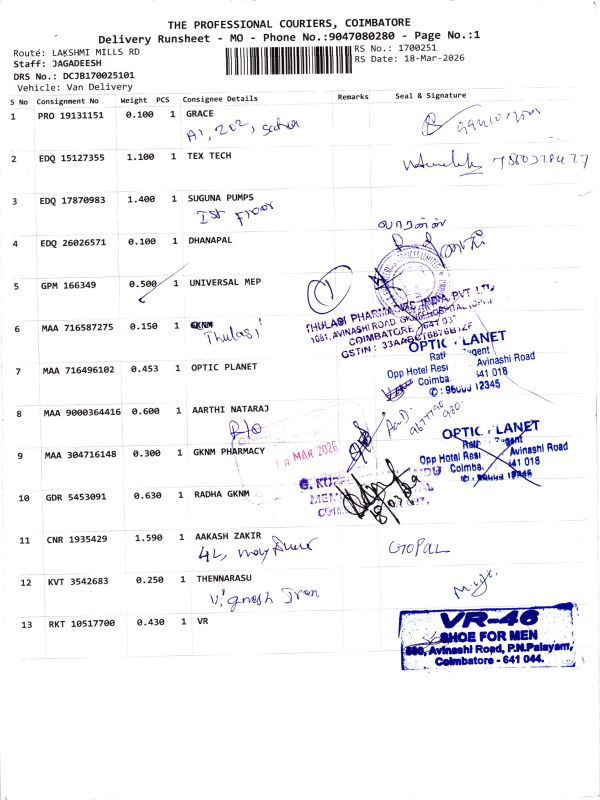 THE PROFESSIONAL COURIERS, COIMBATORE
Delivery Runsheet - MO - Phone No.:9047080280 - Page No.:1
Route: LAKSHMI MILLS RD
RS No.: 1700251
Staff: JAGADEESH
RS Date: 18-Mar-2026
DRS No.: DCJB170025101
Vehicle: Van Delivery
S No Consignment No Weight PCS Consignee Details Remarks Seal & Signature
1 PRO 19131151 0.100 1 GRACE
A1, 202,
2 EDQ 15127355 1.100 1 TEX TECH
3 EDQ 17870983 1.400 1 SUGUNA PUMPS
Ist Floor
4 EDQ 26026571 0.100 1 DHANAPAL
5 GPM 166349 0.500 1 UNIVERSAL MEP
1
THULASI PHARMACIES INDIA PVT LTD
1081, AVINASHI ROAD,
COIMBATORE - 641 037
6 MAA 716587275 0.150 1 GKNM
Thulasi
OPTIC PLANET
Opp Hotel Resi Avinashi Road
Coimba 641 018
12345
7 MAA 716496102 0.453 1 OPTIC PLANET
8 MAA 9000364416 0.600 1 AARTHI NATARAJ
R/O
OPTIC PLANET
Opp Hotel Resi Avinashi Road
Coimba 641 018
9 MAA 304716148 0.300 1 GKNM PHARMACY
MAR 2026
10 GDR 5453091 0.630 1 RADHA GKNM
11 CNR 1935429 1.590 1 AAKASH ZAKIR
4L,
GOPAL
12 KVT 3542683 0.250 1 THENNARASU
13 RKT 10517700 0.430 1 VR
VR-46
SHOE FOR MEN
Avinashi Road, P.N.Palayam,
Coimbatore - 641 044.